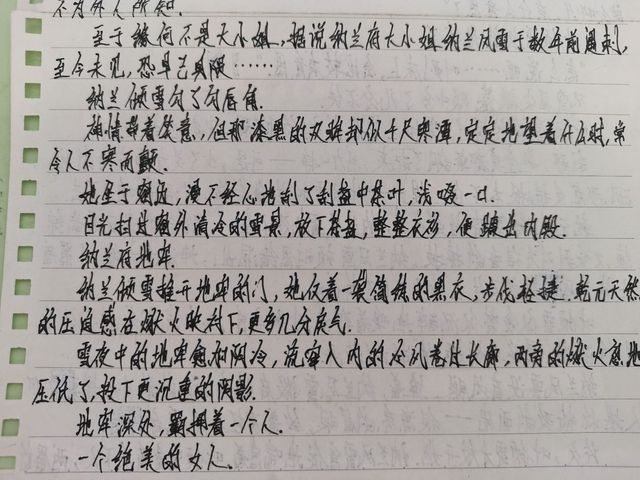 不为外人所知.
至于缘何不是大小姐，据说纳兰府大小姐纳兰风雪于数年前遇刺，
至今未见，恐早已身陨……
纳兰倾雪勾了勾唇角.
神情带着笑意，但那漆黑的双眸却似千尺寒潭，定定地望着什么时，常
令人不寒而颤.
她坐于窗边，漫不经心地刮了刮盏中茶叶，浅啜一口.
目光扫过窗外清冷的雪景，放下茶盏，整整衣衫，便踱出内殿.
纳兰府地牢.
纳兰倾雪推开地牢的门，她仅着一袭简练的黑衣，步伐轻捷.乾元天然
的压迫感在烛火映衬下，更多几分戾气.
雪夜中的地牢愈加阴冷，流窜入内的冷风卷过长廊，两旁的烛火忽地
压低了，投下更沉重的阴影.
地牢深处，羁押着一个人.
一个绝美的女人.